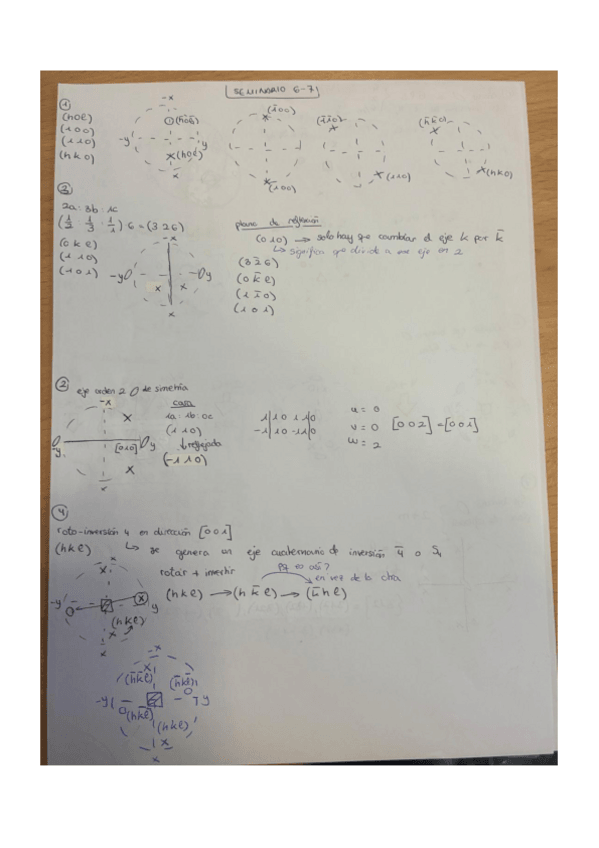 SEMINARIO 6-7
①
(h0l)
(100)
(110)
(hk0)
-x
(h̄0l̄)
-y
y
(h0l)
x
(1̄00)
(100)
(1̄1̄0)
(110)
(h̄k̄0)
(hk0)
③
2a : 3b : 1c
(1/2 1/3 1/1) 6 = (326)
(0kl)
(110)
(101)
-x
-y
y
x
x
x
plano de reflexión
(010) → solo hay que cambiar el eje k por k̄
↳ significa que divide a ese eje en 2
(32̄6)
(0k̄l)
(11̄0)
(101)
②
eje orden 2 de simetría
-x
x
-y
[010]
y
x
x
cara
1a : 1b : 0c
(110)
↓ reflejada
(-110)
1|1 0 1 1|0
-1|1 0 -1 1|0
u = 0
v = 0
w = 2
[002] = [001]
④
roto-inversión 4 en dirección [001]
(hkl) ↳ se genera un eje cuaternario de inversión 4̄ o S₄
rotar + invertir
pq es así?
en vez de la otra
(hkl) → (hk̄l) → (k̄hl)
-x
x
-y
x
y
(hkl)
x
x
-x
x
(h̄k̄l)
-y
y
(hkl)
x
x